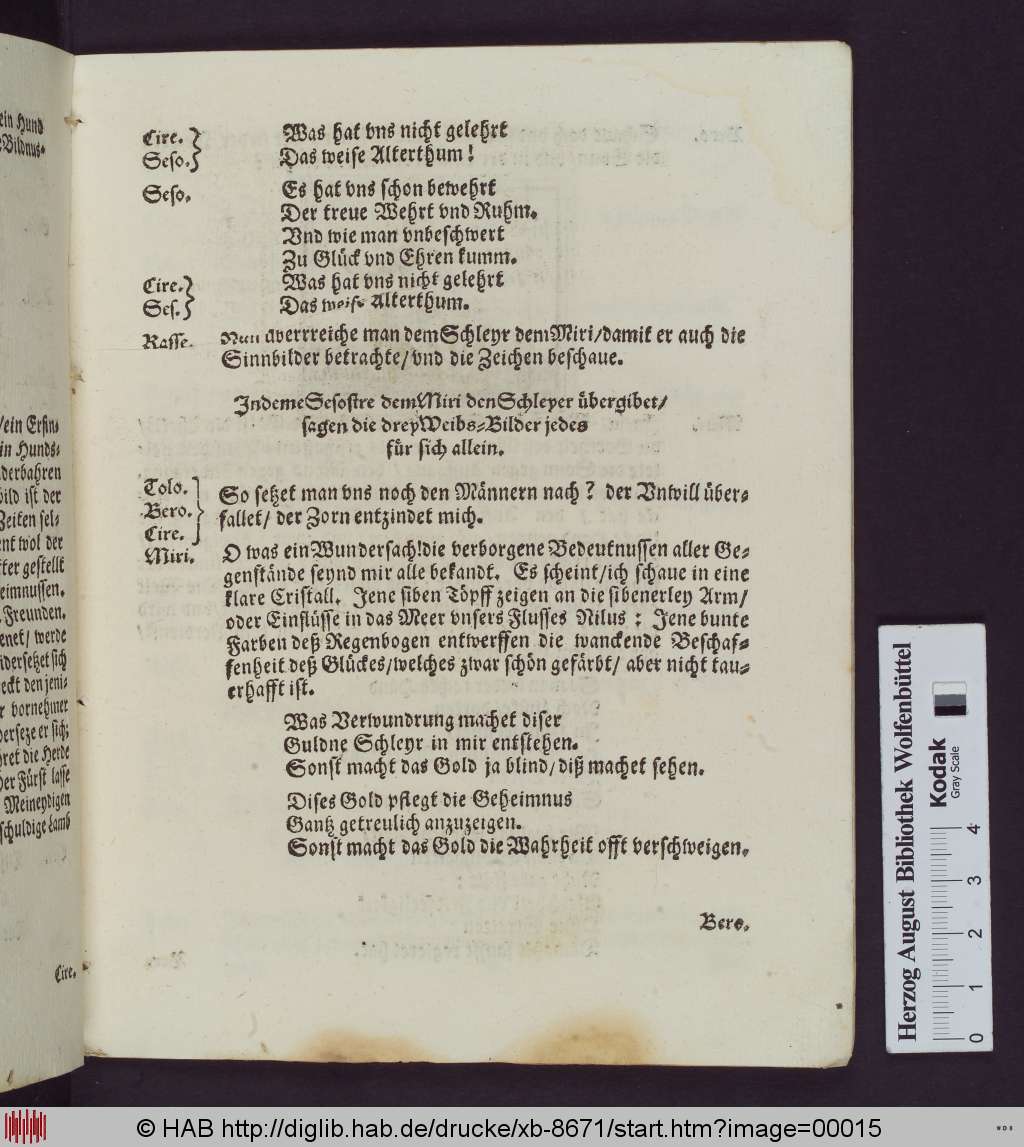 ein Hund
Bildnus.
Cire. } Was hat vns nicht gelehrt
Seso. } Das weise Alterthum!
Seso. Es hat vns schon bewehrt
Der treue Wehrt vnd Ruhm.
Vnd wie man vnbeschwert
Zu Glück vnd Ehren kumm.
Cire. } Was hat vns nicht gelehrt
Ses. } Das weise Alterthum.
Rasse. Nun averrreiche man dem Schleyr dem Miri/damit er auch die
Sinnbilder betrachte/ vnd die Zeichen beschaue.
Indeme Sesostre dem Miri den Schleyer übergibet/
sagen die drey Weibs=Bilder jedes
für sich allein.
Tolo. } So setzet man vns noch den Männern nach? der Vntwill über=
Bero. } fallet/ der Zorn entzindet mich.
Cire. }
Miri. O was ein Wundersach! die verborgene Bedeutnussen aller Ge=
genstände seynd mir alle bekandt. Es scheint/ich schaue in eine
klare Cristall. Jene siben Töpff zeigen an die sibenerley Arm/
oder Einflüsse in das Meer vnsers Flusses Nilus: Jene bunte
Farben deß Regenbogen entwerffen die wanckende Beschaf=
fenheit deß Glückes/welches zwar schön gefärbt/ aber nicht tau=
erhafft ist.
Was Verwundrung machet diser
Guldne Schleyr in mir entstehen.
Sonst macht das Gold ja blind/diß machet sehen.
Dises Gold pflegt die Geheimnus
Gantz getreulich anzuzeigen.
Sonst macht das Gold die Wahrheit offt verschweigen.
Bero.
/ein Erfin=
in Hunds=
derbahren
bild ist der
Zeiten sel=
ent wol der
tter gestellt
eimnussen.
Freunden.
enet/ werde
idersetzet sich
eckt den jeni=
r vornehmer
derseze er sich;
hret die Herde
der Fürst lasse
Meineydigen
schuldige Lamb
Cire.
Herzog August Bibliothek Wolfenbüttel
Kodak
Gray Scale
0 1 2 3 4
© HAB http://diglib.hab.de/drucke/xb-8671/start.htm?image=00015